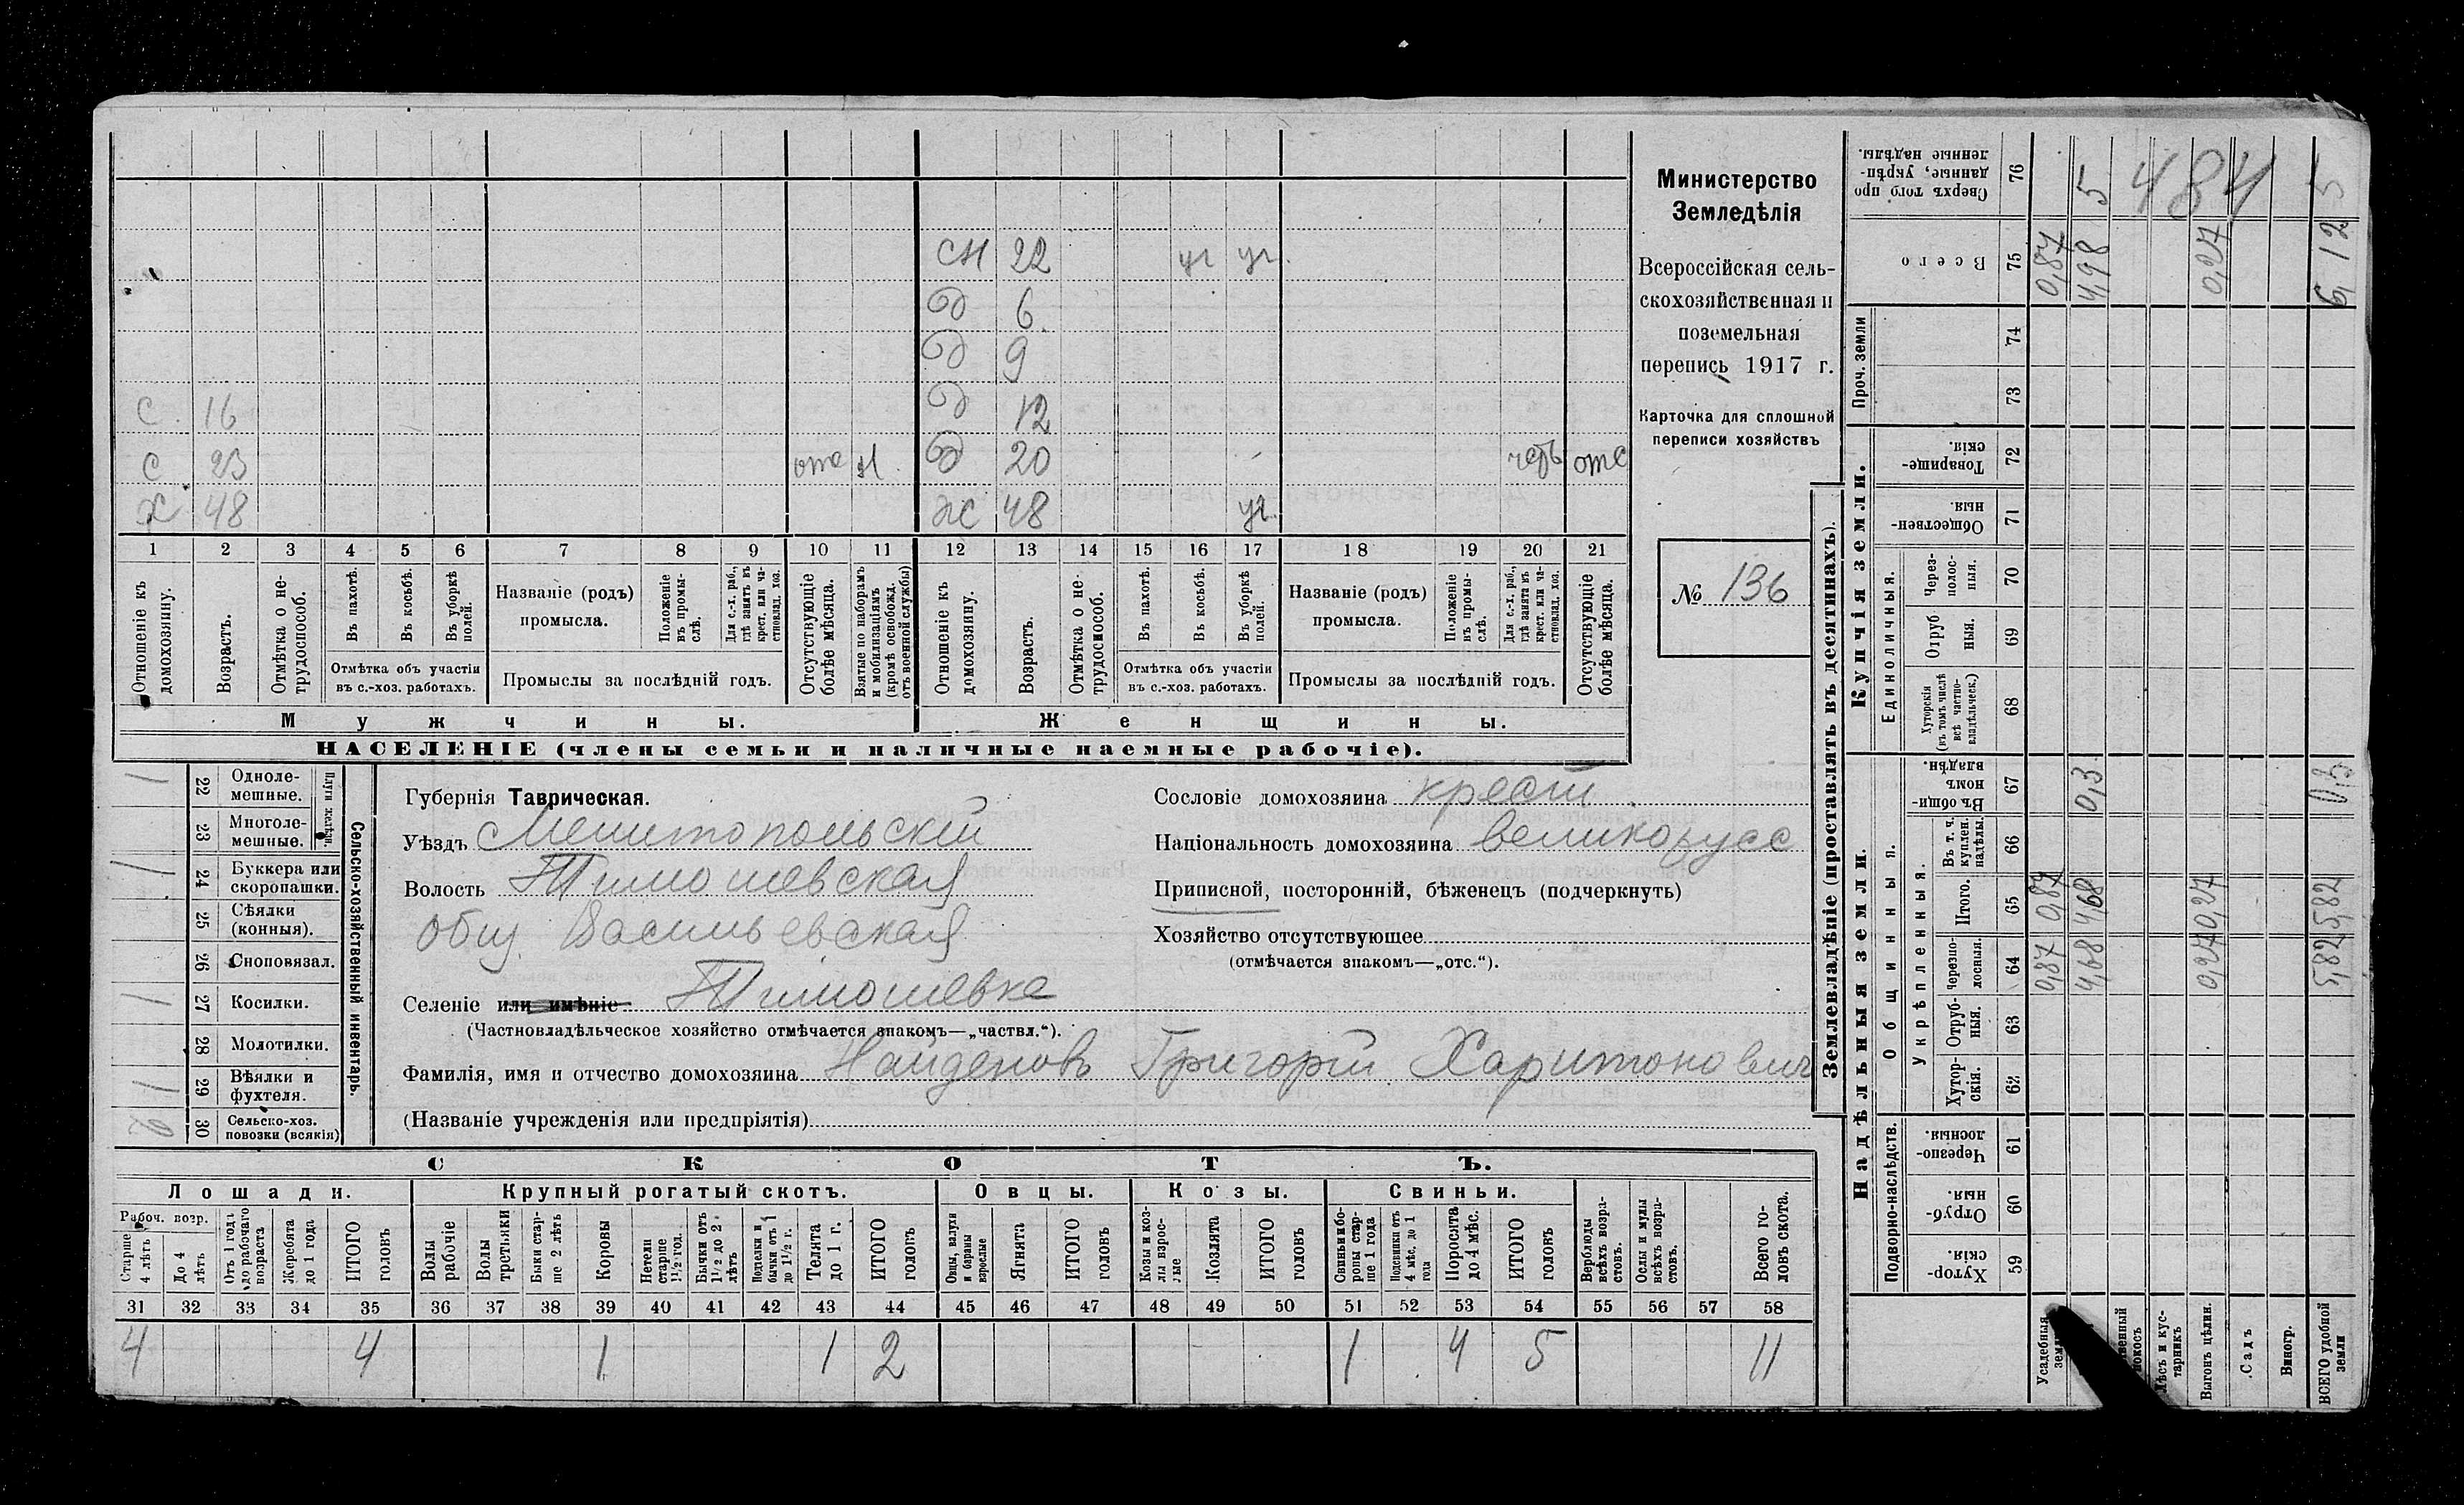 сн 22 уч уч.
д 6
д 9
с. 16 д 12
с 23 отс д 20 отс
х 48 ж 48 уч.
1 2 3 4 5 6 7 8 9 10 11 12 13 14 15 16 17 18 19 20 21
Отношеніе къ домохозяину.
Возрастъ.
Отмѣтка о не-трудоспособ.
Въ пахотѣ.
Въ косьбѣ.
Въ уборкѣ полей.
Отмѣтка объ участіи
въ с.-хоз. работахъ.
Названіе (родъ)
промысла.
Положеніе въ промы-слѣ.
Для с.-х. раб., гдѣ занятъ въ крест. или ча-стновлад. хоз.
Промыслы за послѣдній годъ.
Отсутствующіе болѣе мѣсяца.
Взятые по наборамъ и мобилизаціямъ (кромѣ освобожд. отъ военной службы)
Отношеніе къ домохозяину.
Возрастъ.
Отмѣтка о не-трудоспособ.
Въ пахотѣ.
Въ косьбѣ.
Въ уборкѣ полей.
Отмѣтка объ участіи
въ с.-хоз. работахъ.
Названіе (родъ)
промысла.
Положеніе въ промы-слѣ.
Для с.-х. раб., гдѣ занята въ крест. или ча-стновлад. хоз.
Промыслы за послѣдній годъ.
Отсутствующіе болѣе мѣсяца.
Мужчины. Женщины.
НАСЕЛЕНІЕ (члены семьи и наличные наемные рабочіе).
Министерство
Земледѣлія
Всероссійская сель-
скохозяйственная и
поземельная
перепись 1917 г.
Карточка для сплошной
переписи хозяйствъ
№ 136
Сельско-хозяйственный инвентарь.
Плуги желѣзн.
1 22 Одноле-мешные.
23 Многоле-мешные.
1 24 Буккера или скоропашки.
25 Сѣялки (конныя).
26 Сноповязал.
1 27 Косилки.
28 Молотилки.
1 29 Вѣялки и фухтеля.
2 30 Сельско-хоз. повозки (всякія)
Губернія Таврическая.
Уѣздъ Мелитопольскій
Волость Тимошевская
общ Васильевская
Селеніе или имѣніе Тимошевка
(Частновладѣльческое хозяйство отмѣчается знакомъ—„частвл.“).
Фамилія, имя и отчество домохозяина Найденовъ Григорій Харитонович
(Названіе учрежденія или предпріятія)
Сословіе домохозяина крест.
Національность домохозяина великорусс
Приписной, посторонній, бѣженецъ (подчеркнуть)
Хозяйство отсутствующее
(отмѣчается знакомъ—„отс.“).
СКОТЪ.
Лошади. Крупный рогатый скотъ. Овцы. Козы. Свиньи.
Рабоч. возр.
Старше 4 лѣтъ
До 4 лѣтъ
Отъ 1 года до рабочаго возраста
Жеребята до 1 года
ИТОГО головъ
Волы рабочіе
Волы третьяки
Быки стар-ше 2 лѣтъ
Коровы
Нетели старше 1½ год.
Бычки отъ 1½ до 2 лѣтъ
Подтелки и бычки отъ 1 до 1½ г.
Телята до 1 г.
ИТОГО головъ
Овцы, валухи и бараны взрослые
Ягнята
ИТОГО головъ
Козы и коз-лы взрос-лые
Козлята
ИТОГО головъ
Свиньи и бо-ровы стар-ше 1 года
Подсвинки отъ 4 мѣс. до 1 года
Поросята до 4 мѣс.
ИТОГО головъ
Верблюды всѣхъ возра-стовъ.
Ослы и мулы всѣхъ возра-стовъ.
Всего го-ловъ скота.
31 32 33 34 35 36 37 38 39 40 41 42 43 44 45 46 47 48 49 50 51 52 53 54 55 56 57 58
4 4 1 1 2 1 4 5 11
Землевладѣніе (проставлять въ десятинахъ).
Надѣльныя земли. Купчія земли. Проч. земли
Подворно-наслѣдств. Общинныя. Укрѣпленныя. Единоличныя.
Хутор-скія. 59
Отруб-ныя. 60
Черезпо-лосныя. 61
Хутор-скія. 62
Отруб-ныя. 63
Черезпо-лосныя. 64
Итого. 65
Въ т. ч. куплен. надѣлы. 66
Въ общин-номъ владѣн. 67
Хуторскія (въ томъ числѣ всѣ частно-владѣльческ.) 68
Отруб ныя. 69
Через-полос-ныя. 70
Обществен-ныя. 71
Товарище-скія. 72
73
74
Всего 75
Сверхъ того про данные, укрѣп-ленные надѣлы. 76
Усадебныя 0,87 0,87 0,87
4,68 4,68 0,3 4,98 5
Лѣсъ и кус-тарникъ
Выгонъ цѣлин. 0,27 0,27 0,27
Садъ
Виногр.
ВСЕГО удобной земли 5,82 5,82 0,3 6,12 5
484